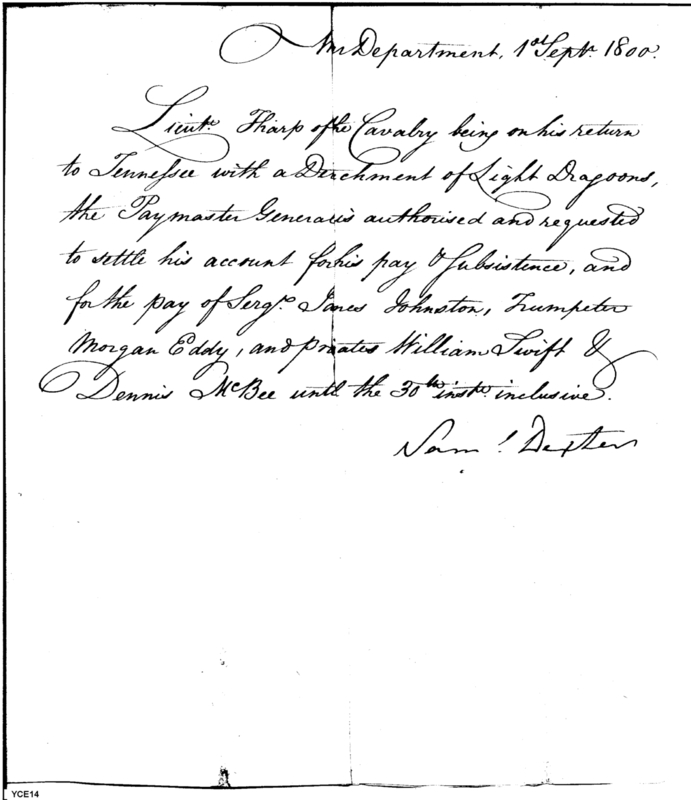 War Department, 1st Septr. 1800.
Lieutt. Tharp of the Cavalry being on his return
to Tennessee with a Detachment of Light Dragoons,
the Paymaster General is authorised and requested
to settle his account for his pay & Subsistence, and
for the pay of Sergt. James Johnston, Trumpeter
Morgan Eddy, and privates William Swift &
Dennis McBee until the 30th instt. inclusive.
Saml. Dexter
YCE14